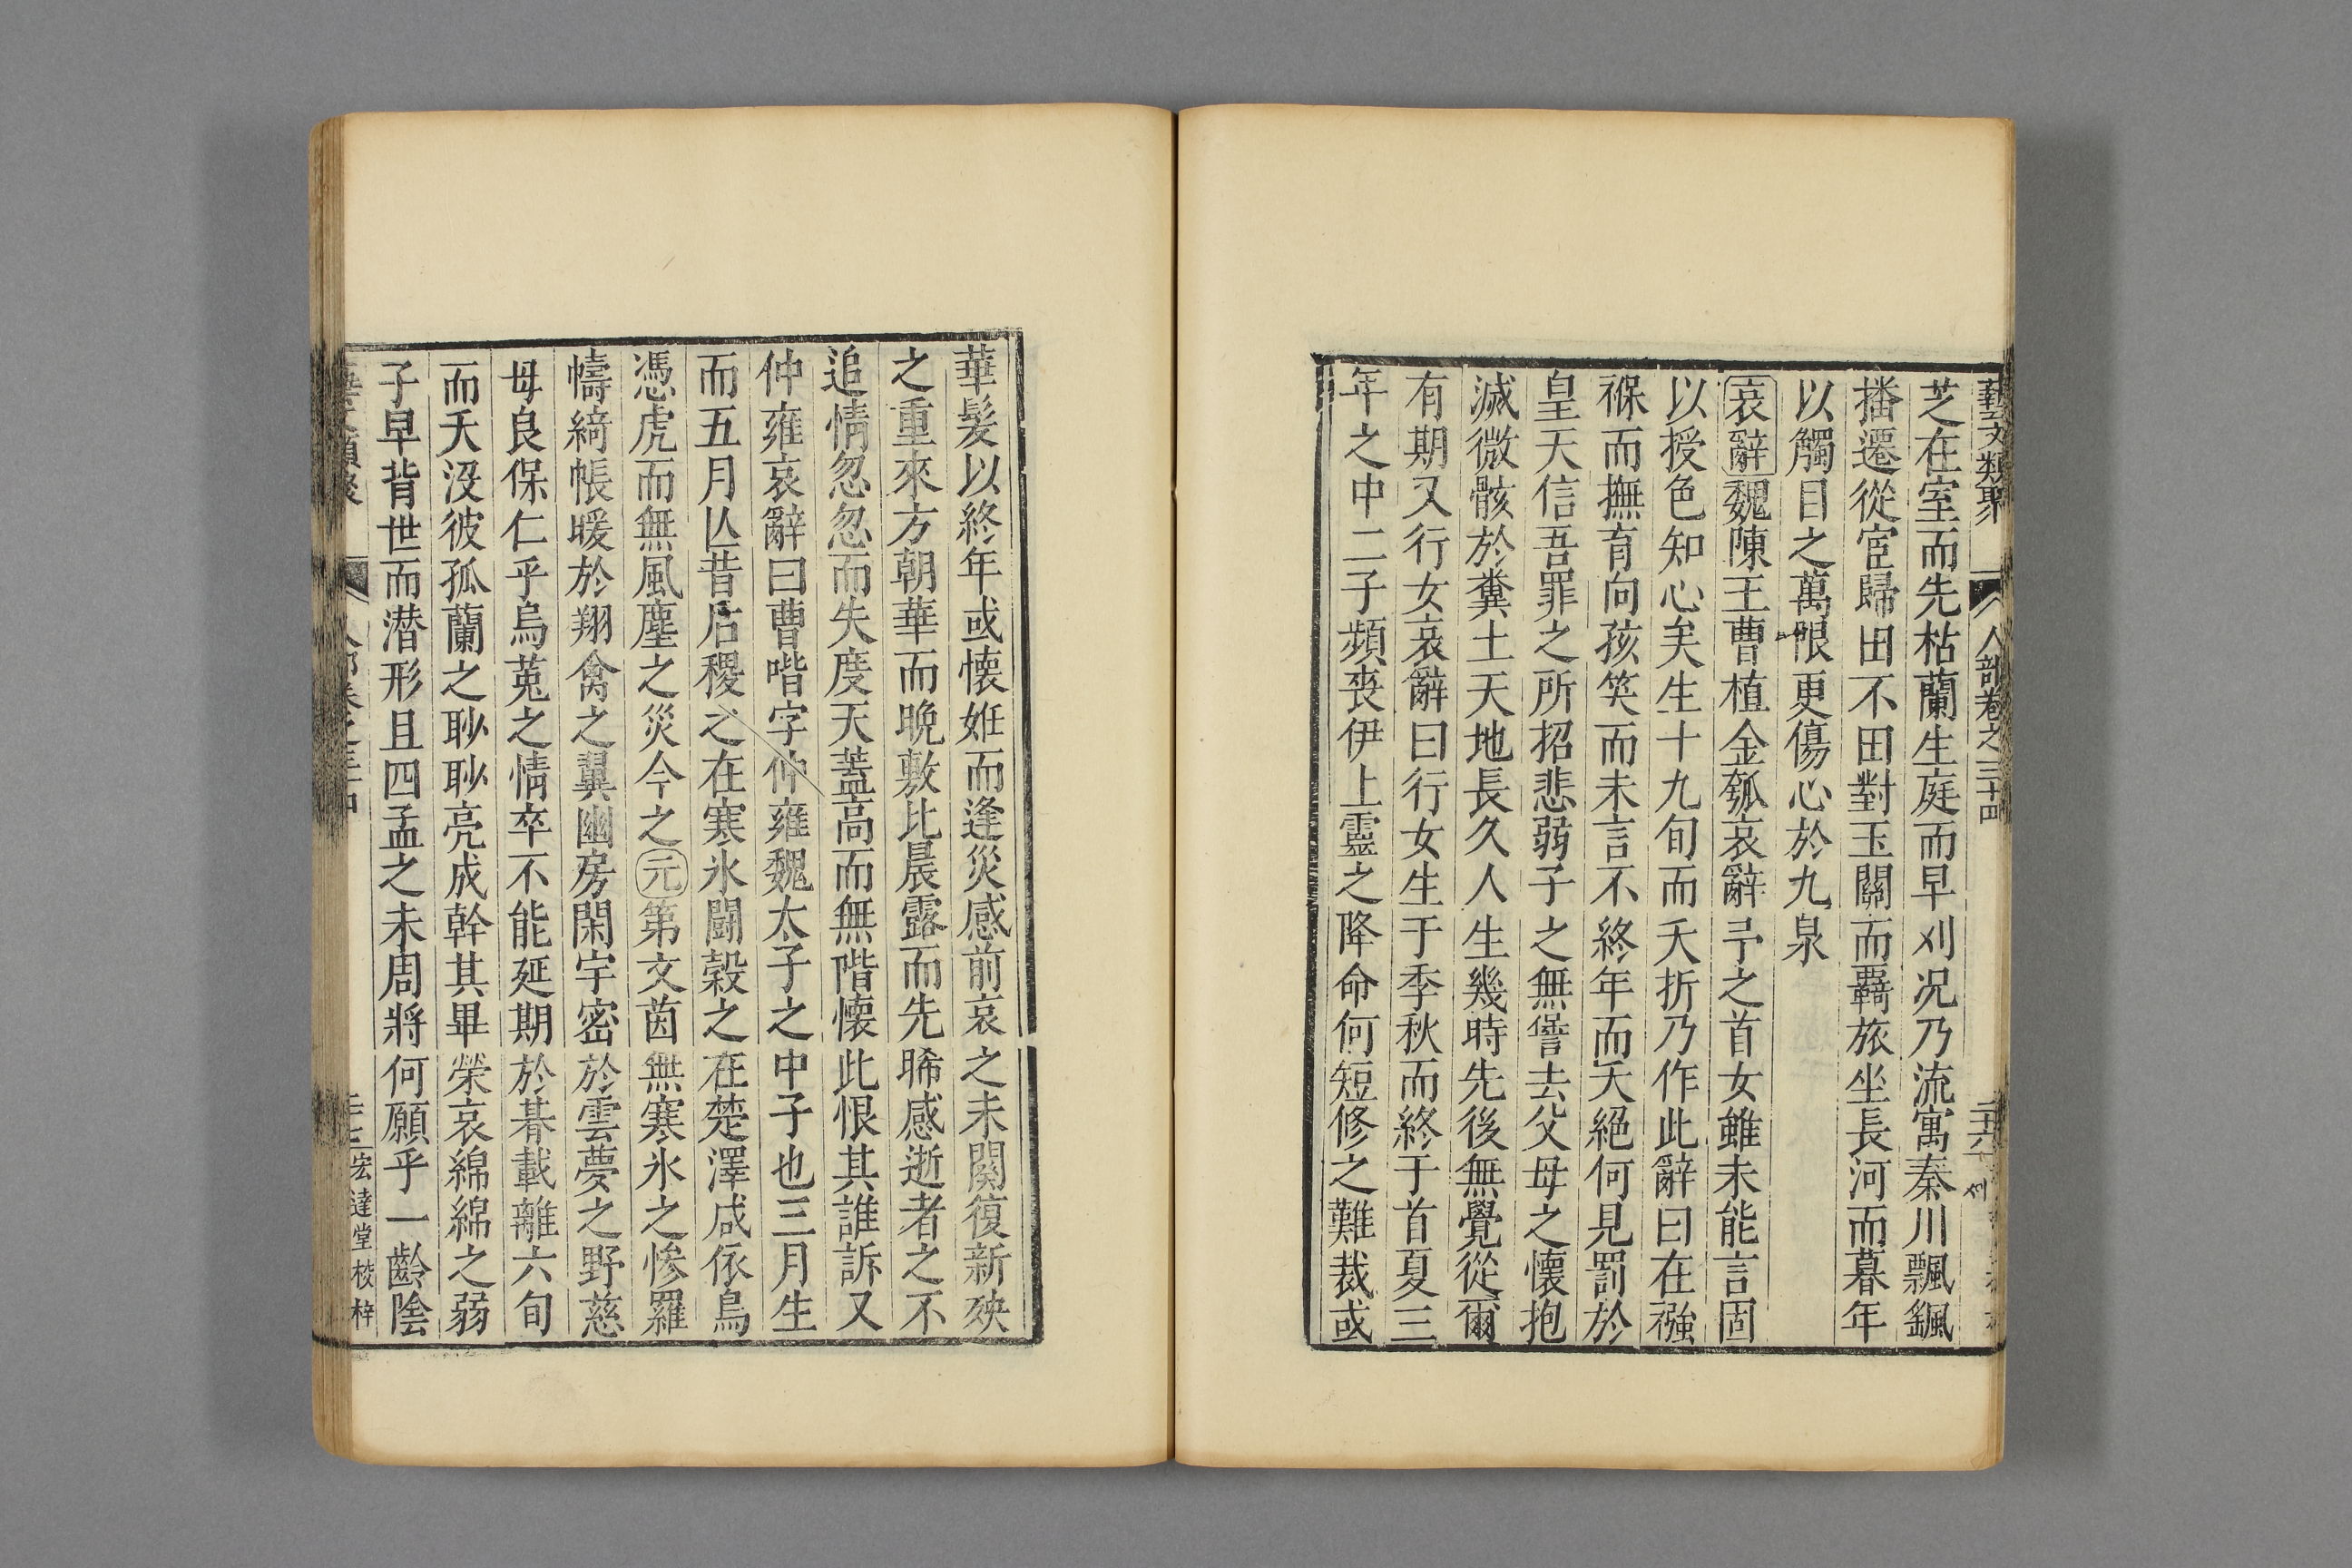 藝文類聚 人部卷之三十四 二十六
芝在室而先枯蘭生庭而早刈况乃流寓秦川飄颻
播遷從宦歸田不田對玉關而羇旅坐長河而暮年
以觸目之萬恨更傷心於九泉
哀辭魏陳王曹植金瓠哀辭予之首女雖未能言固
以授色知心矣生十九旬而夭折乃作此辭曰在襁
褓而撫育向孩笑而未言不終年而夭絕何見罰於
皇天信吾罪之所招悲弱子之無諐去父母之懷抱
滅微骸於糞土天地長久人生幾時先後無覺從爾
有期又行女哀辭曰行女生于季秋而終于首夏三
年之中二子頻喪伊上靈之降命何短修之難裁或
華髮以終年或懷姙而逢災感前哀之未闋復新殃
之重來方朝華而晚敷比晨露而先晞感逝者之不
追情忽忽而失度天蓋高而無階懷此恨其誰訴又
仲雍哀辭曰曹喈字仲雍魏太子之中子也三月生
而五月亾昔后稷之在寒氷鬪穀之在楚澤咸依鳥
憑虎而無風塵之災今之元第文茵無寒氷之慘羅
幬綺帳暖於翔禽之翼幽房閑宇密於雲夢之野慈
母良保仁乎烏菟之情卒不能延期於朞載離六旬
而夭沒彼孤蘭之眇眇亮成幹其畢榮哀綿綿之弱
子早背世而潛形且四孟之未周將何願乎一齡陰
類聚 人部卷之三十四 二十七 宏達堂校梓